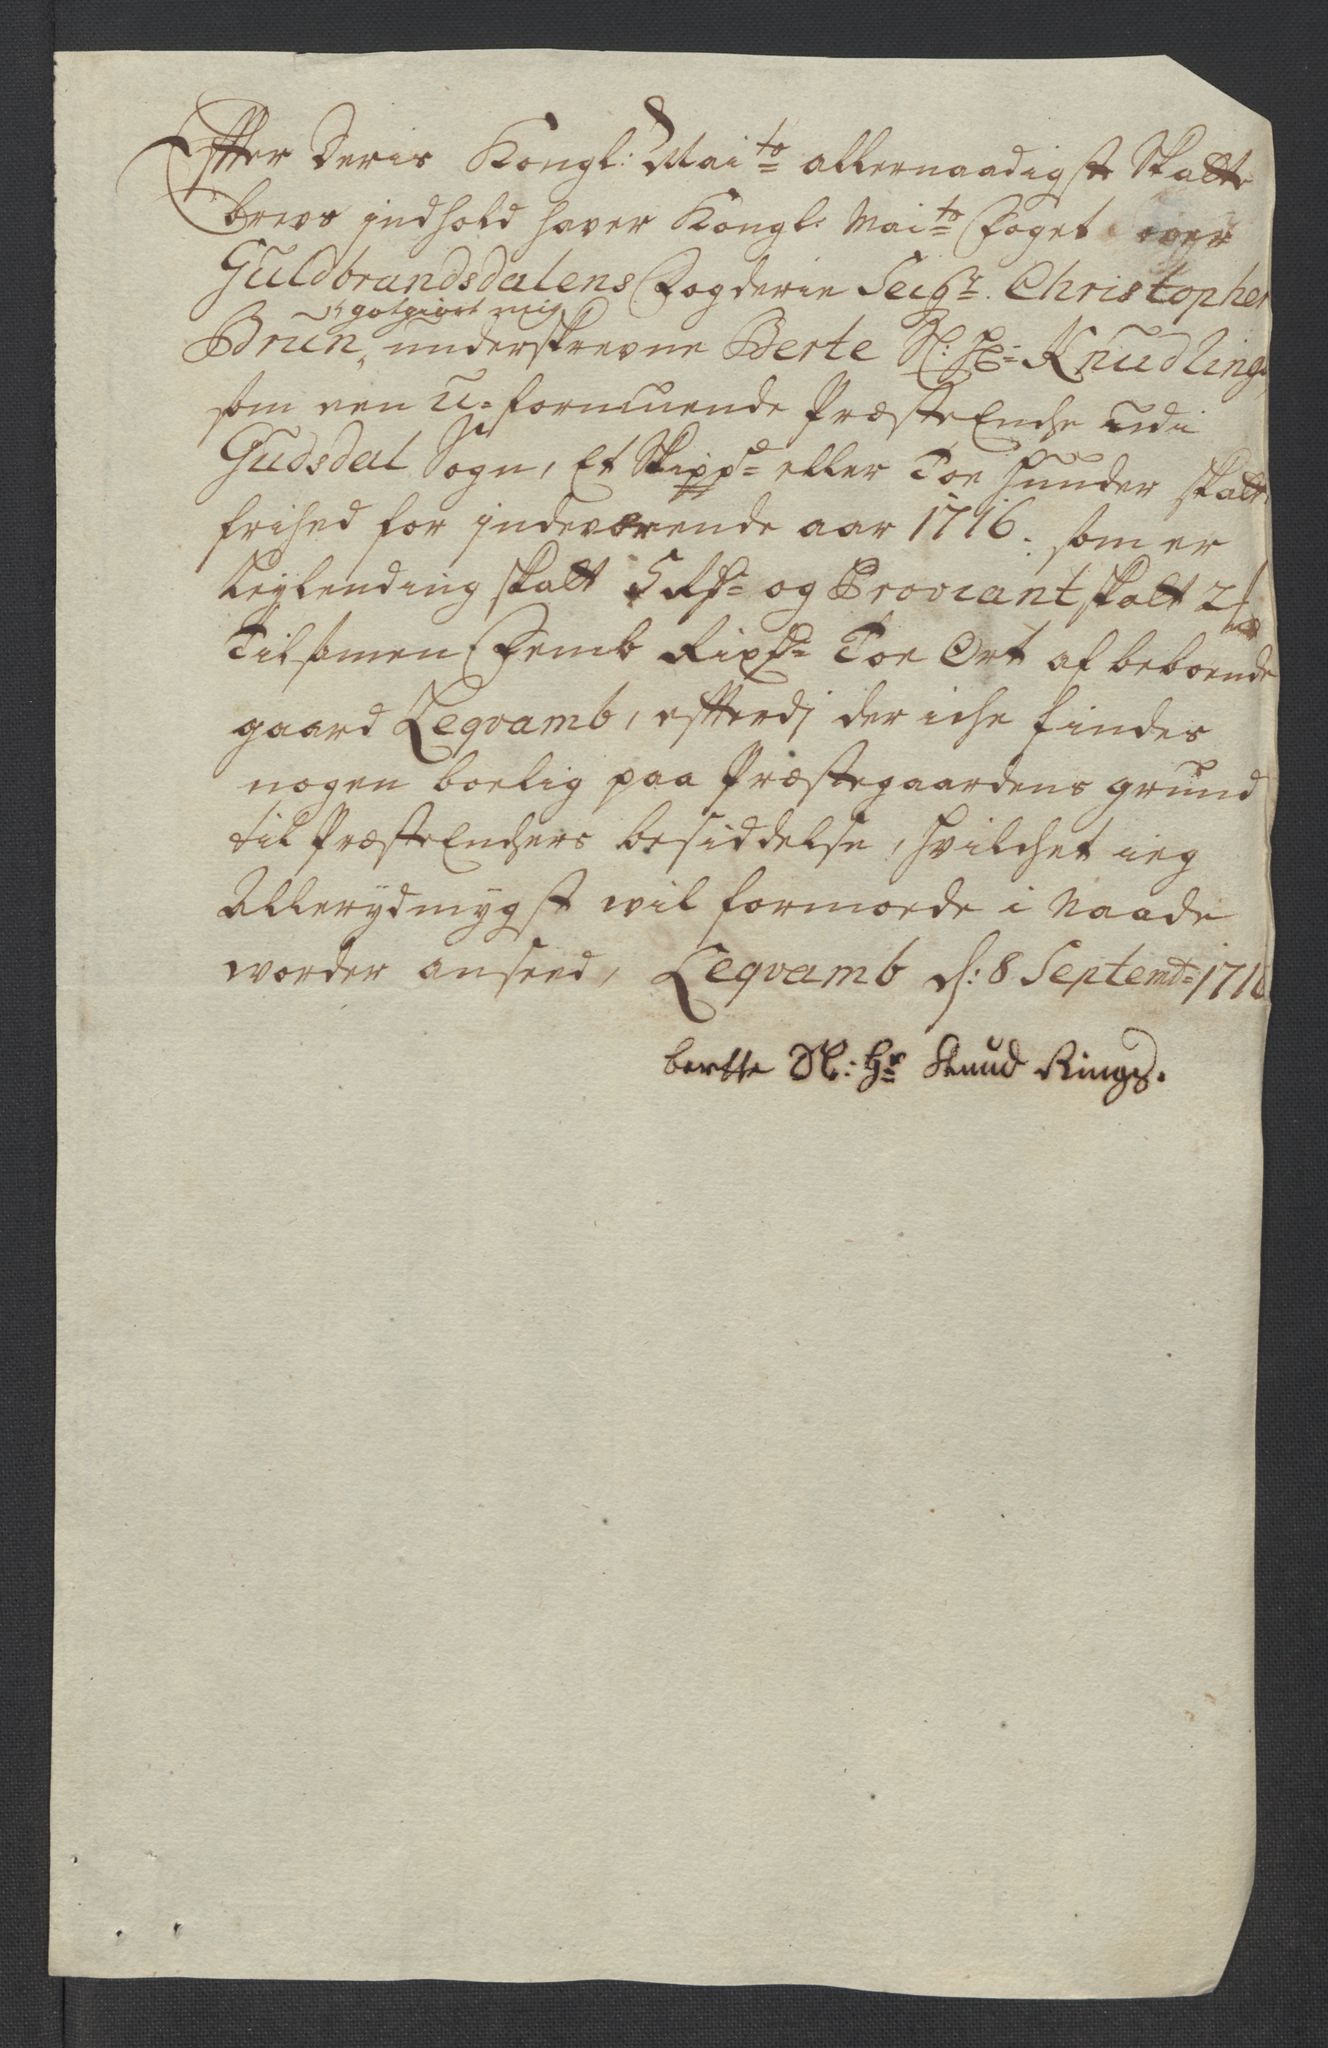 Effter Deris Kongl: Mai:to allernaadigste Skatte
brevs jndhold haver Kongl: Mai:to Foget over
Guldbrandsdalens Fogderie Seigr. Christopher
godgiort mig
Brun, underskrevne Berte Sl: Hr: Knud Rings
som een u-formuende PræsteEnche udi
Gudsdal Sogn, Et Skippd eller Toe Hunder skatte
frihed for jndeværende aar 1716. som er
Leylending skatt 5 Rdr og Proviant skatt 2
Tilsamen Femb Rixdr Toe Ort af beboende
gaard Leqvamb, effterdj der iche findes
nogen boelig paa Præstegaardens grund
til PræsteEnchers besiddelse, Hvilchet ieg
Allerydmygst wil formoede i Naade
worder anseed, Leqvamb d: 8 Septembr 1716
bertte Sl: Hr Knud Rings.